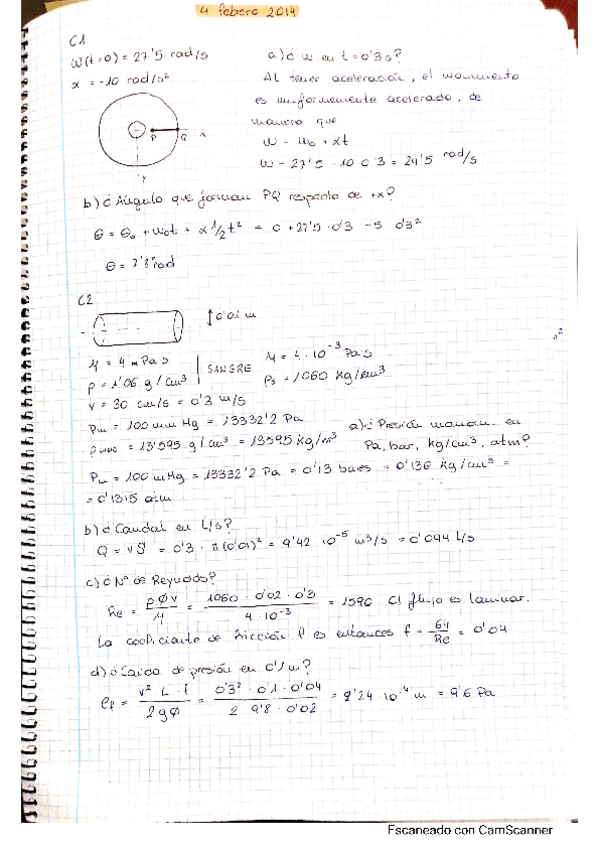 4 febero 2014
C1
w(t=0) = 27'5 rad/s
α = -10 rad/s²
a) ¿ w en t = 0'3 s?
Al tener aceleración, el movimiento
es uniformemente acelerado, de
manera que
w = w₀ + αt
w = 27'5 - 10 · 0'3 = 24'5 rad/s
P Q x
y
b) ¿ Ángulo que forman PQ respecto de +x?
θ = θ₀ + w₀t + α 1/2 t² = 0 + 27'5 · 0'3 - 5 · 0'3²
θ = 7'8 rad
C2
0'01 m
η = 4 mPa s
ρ = 1'06 g/cm³
SANGRE
η = 4 · 10⁻³ Pa s
ρs = 1060 kg/m³
v = 30 cm/s = 0'3 m/s
Pm = 100 mm Hg = 13332'2 Pa
= 13'595 g/cm³ = 13595 kg/m³
a) ¿ Presión manom. en
Pa, bar, kg/cm², atm?
Pm = 100 mmHg = 13332'2 Pa = 0'13 bares = 0'136 kg/cm² =
= 0'1315 atm
b) ¿ Caudal en L/s?
Q = v S = 0'3 · π(0'01)² = 9'42 · 10⁻⁵ m³/s = 0'094 L/s
c) ¿ Nº de Reynolds?
Re = ρ Ø v / η = 1060 · 0'02 · 0'3 / 4 · 10⁻³ = 1590 El flujo es laminar.
La coeficiente de fricción f es entonces f = 64 / Re = 0'04
d) ¿ Caída de presión en 0'1 m?
= v² · L · f / 2gØ = 0'3² · 0'1 · 0'04 / 2 · 9'8 · 0'02 = 9'24 · 10⁻⁴ m = 9'6 Pa
Escaneado con CamScanner